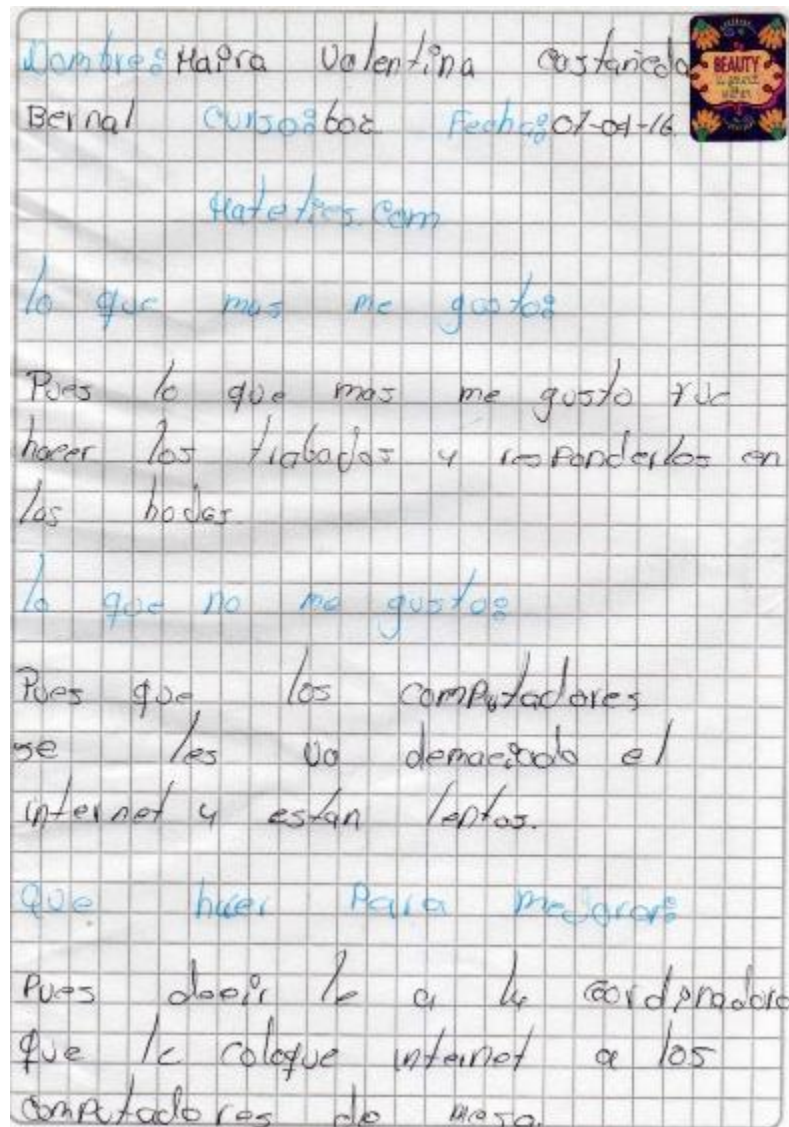 Nombre: Maira Valentina Castañeda
Bernal Curso: 602 Fecha: 07-09-16
BEAUTY
Matetics.com
lo que mas me gusto:
Pues lo que mas me gusto fue
hacer los trabajos y responderlos en
las hojas.
lo que no me gusto:
Pues que los computadores
se les va demaciado el
internet y estan lentos.
que hacer Para mejorar:
Pues decir le a la cordinadora
que le coloque internet a los
computadores de mesa.